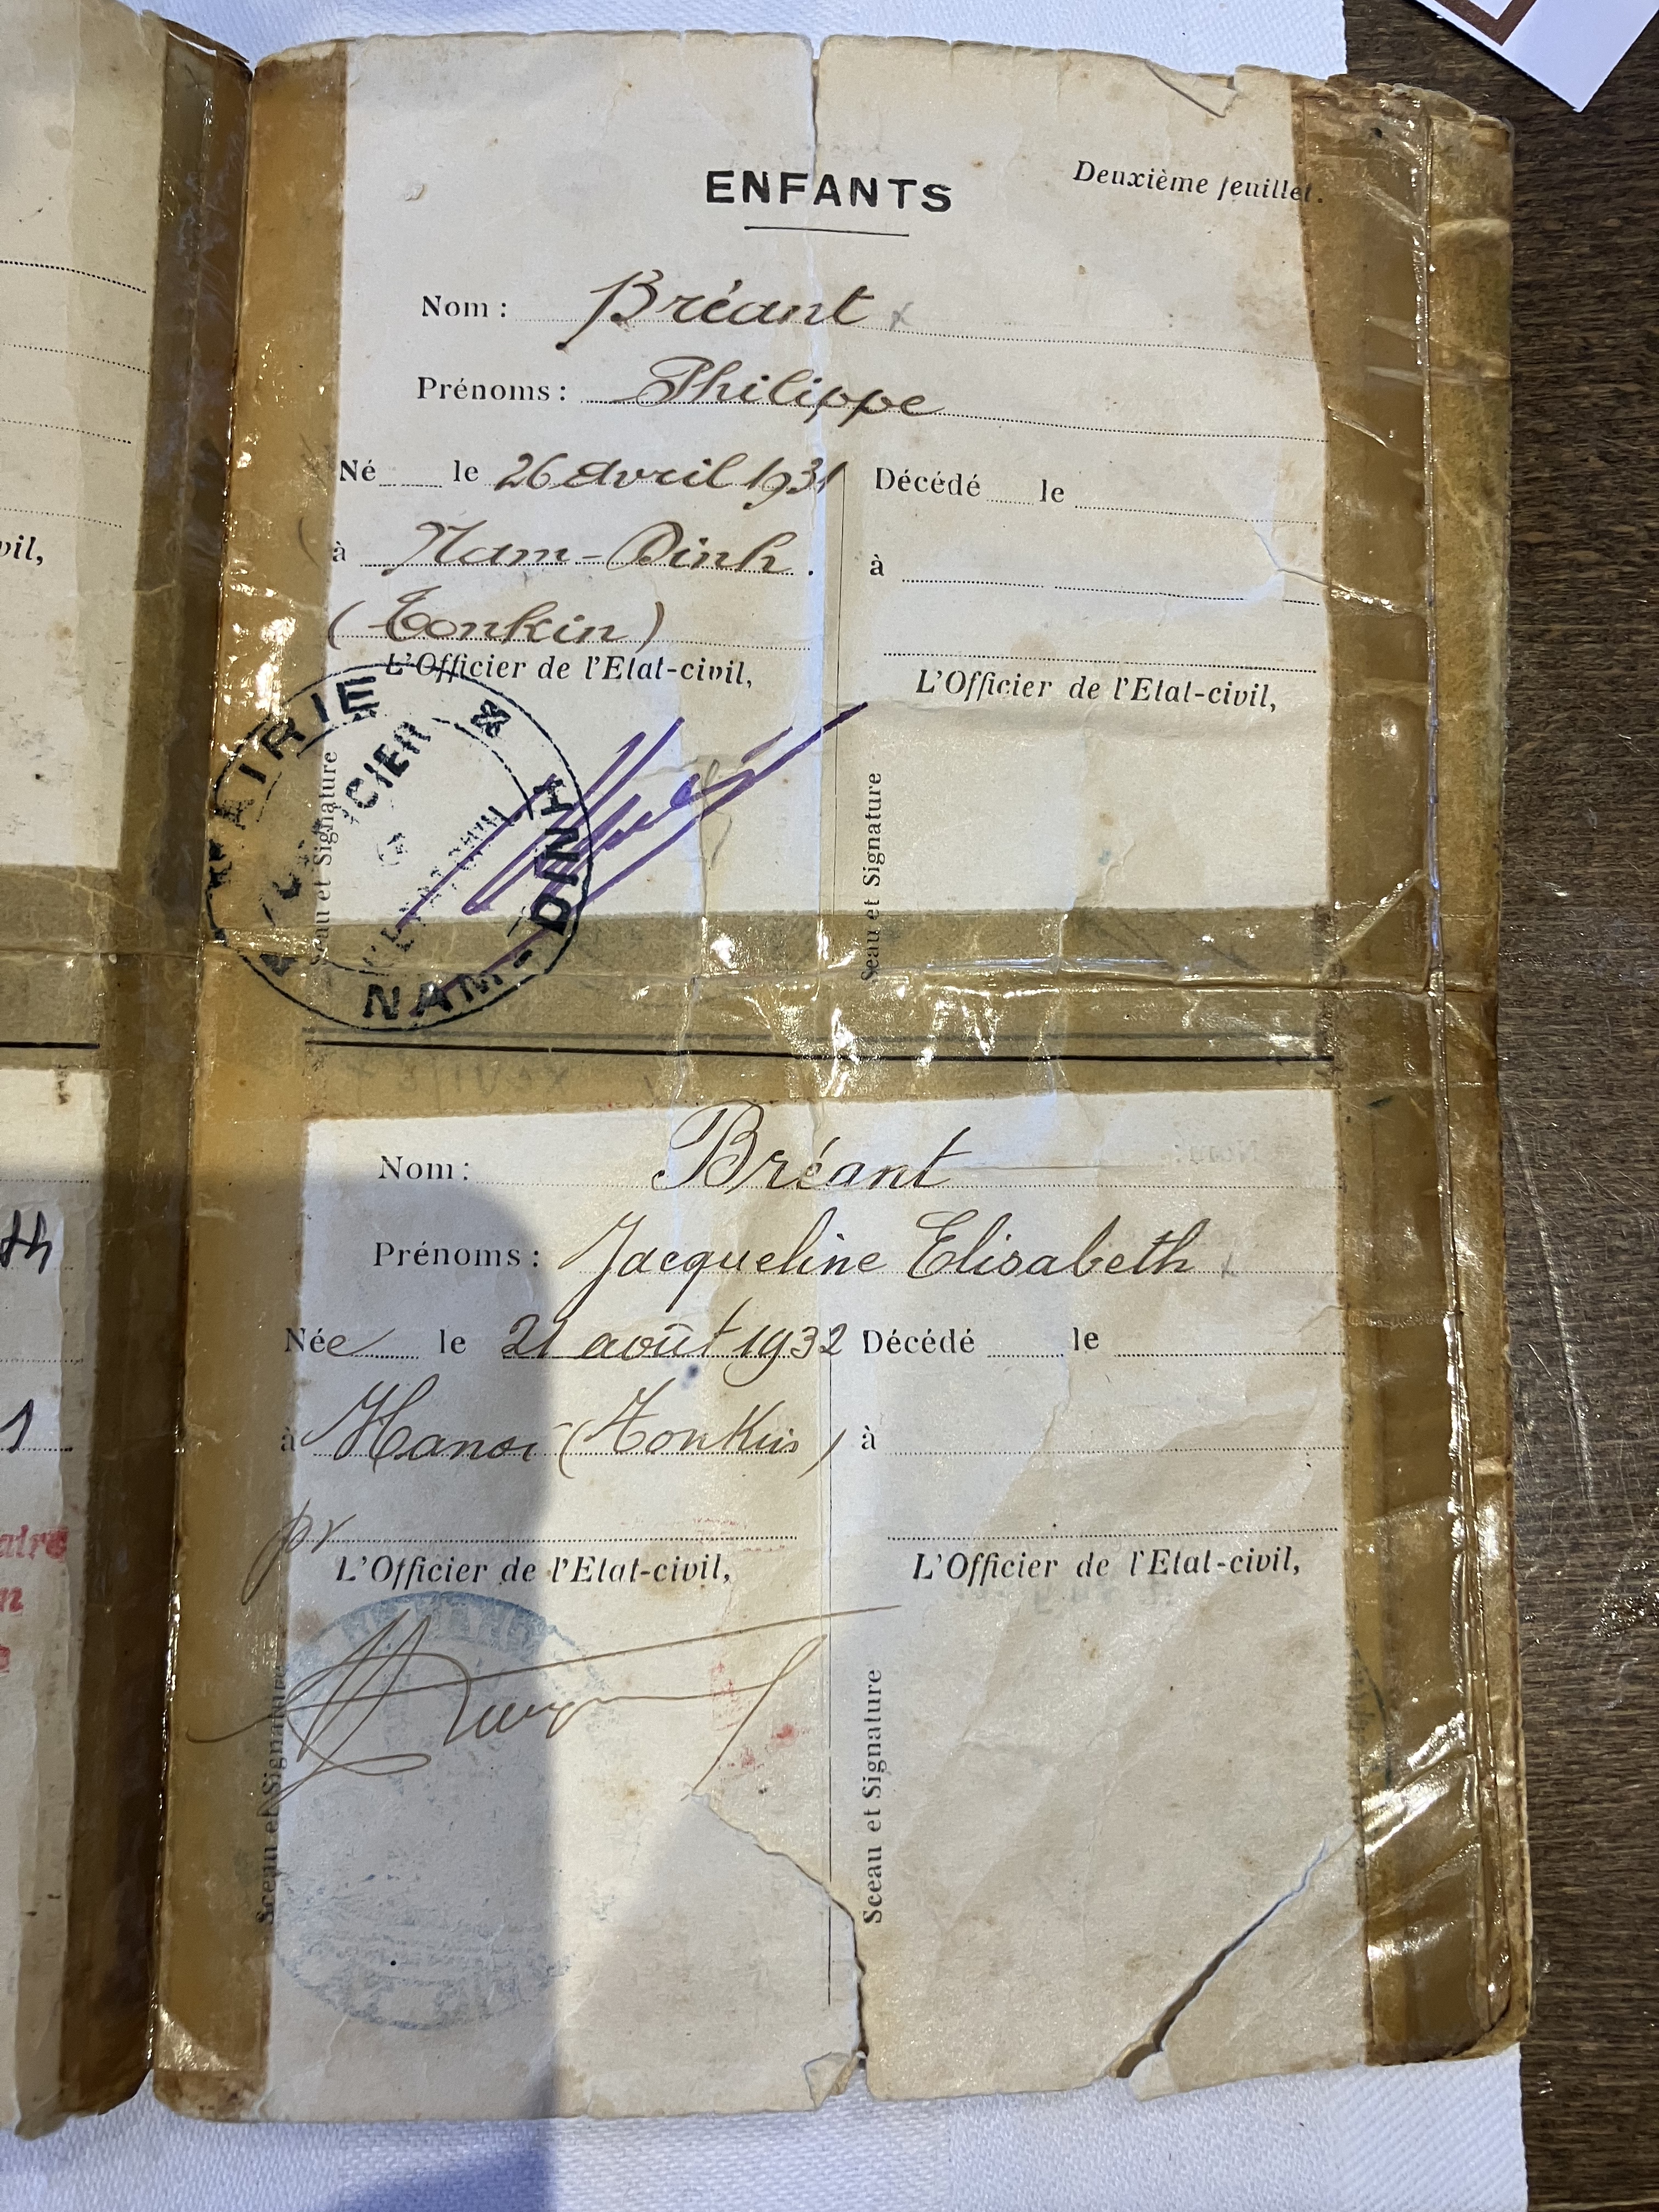 vil,
1
ENFANTS
Deuxième feuillet.
Nom : Bréant
Prénoms : Philippe
Né le 26 Avril 1931
à Nam-Dinh.
(Tonkin)
L'Officier de l'Etat-civil,
Sceau et Signature
MAIRIE
NAM-DINH
Décédé le
à
L'Officier de l'Etat-civil,
Sceau et Signature
Nom : Bréant
Prénoms : Jacqueline Elisabeth
Née le 21 août 1932
à Hanoi (Tonkin)
pr
L'Officier de l'Etat-civil,
Sceau et Signature
Décédé le
à
L'Officier de l'Etat-civil,
Sceau et Signature